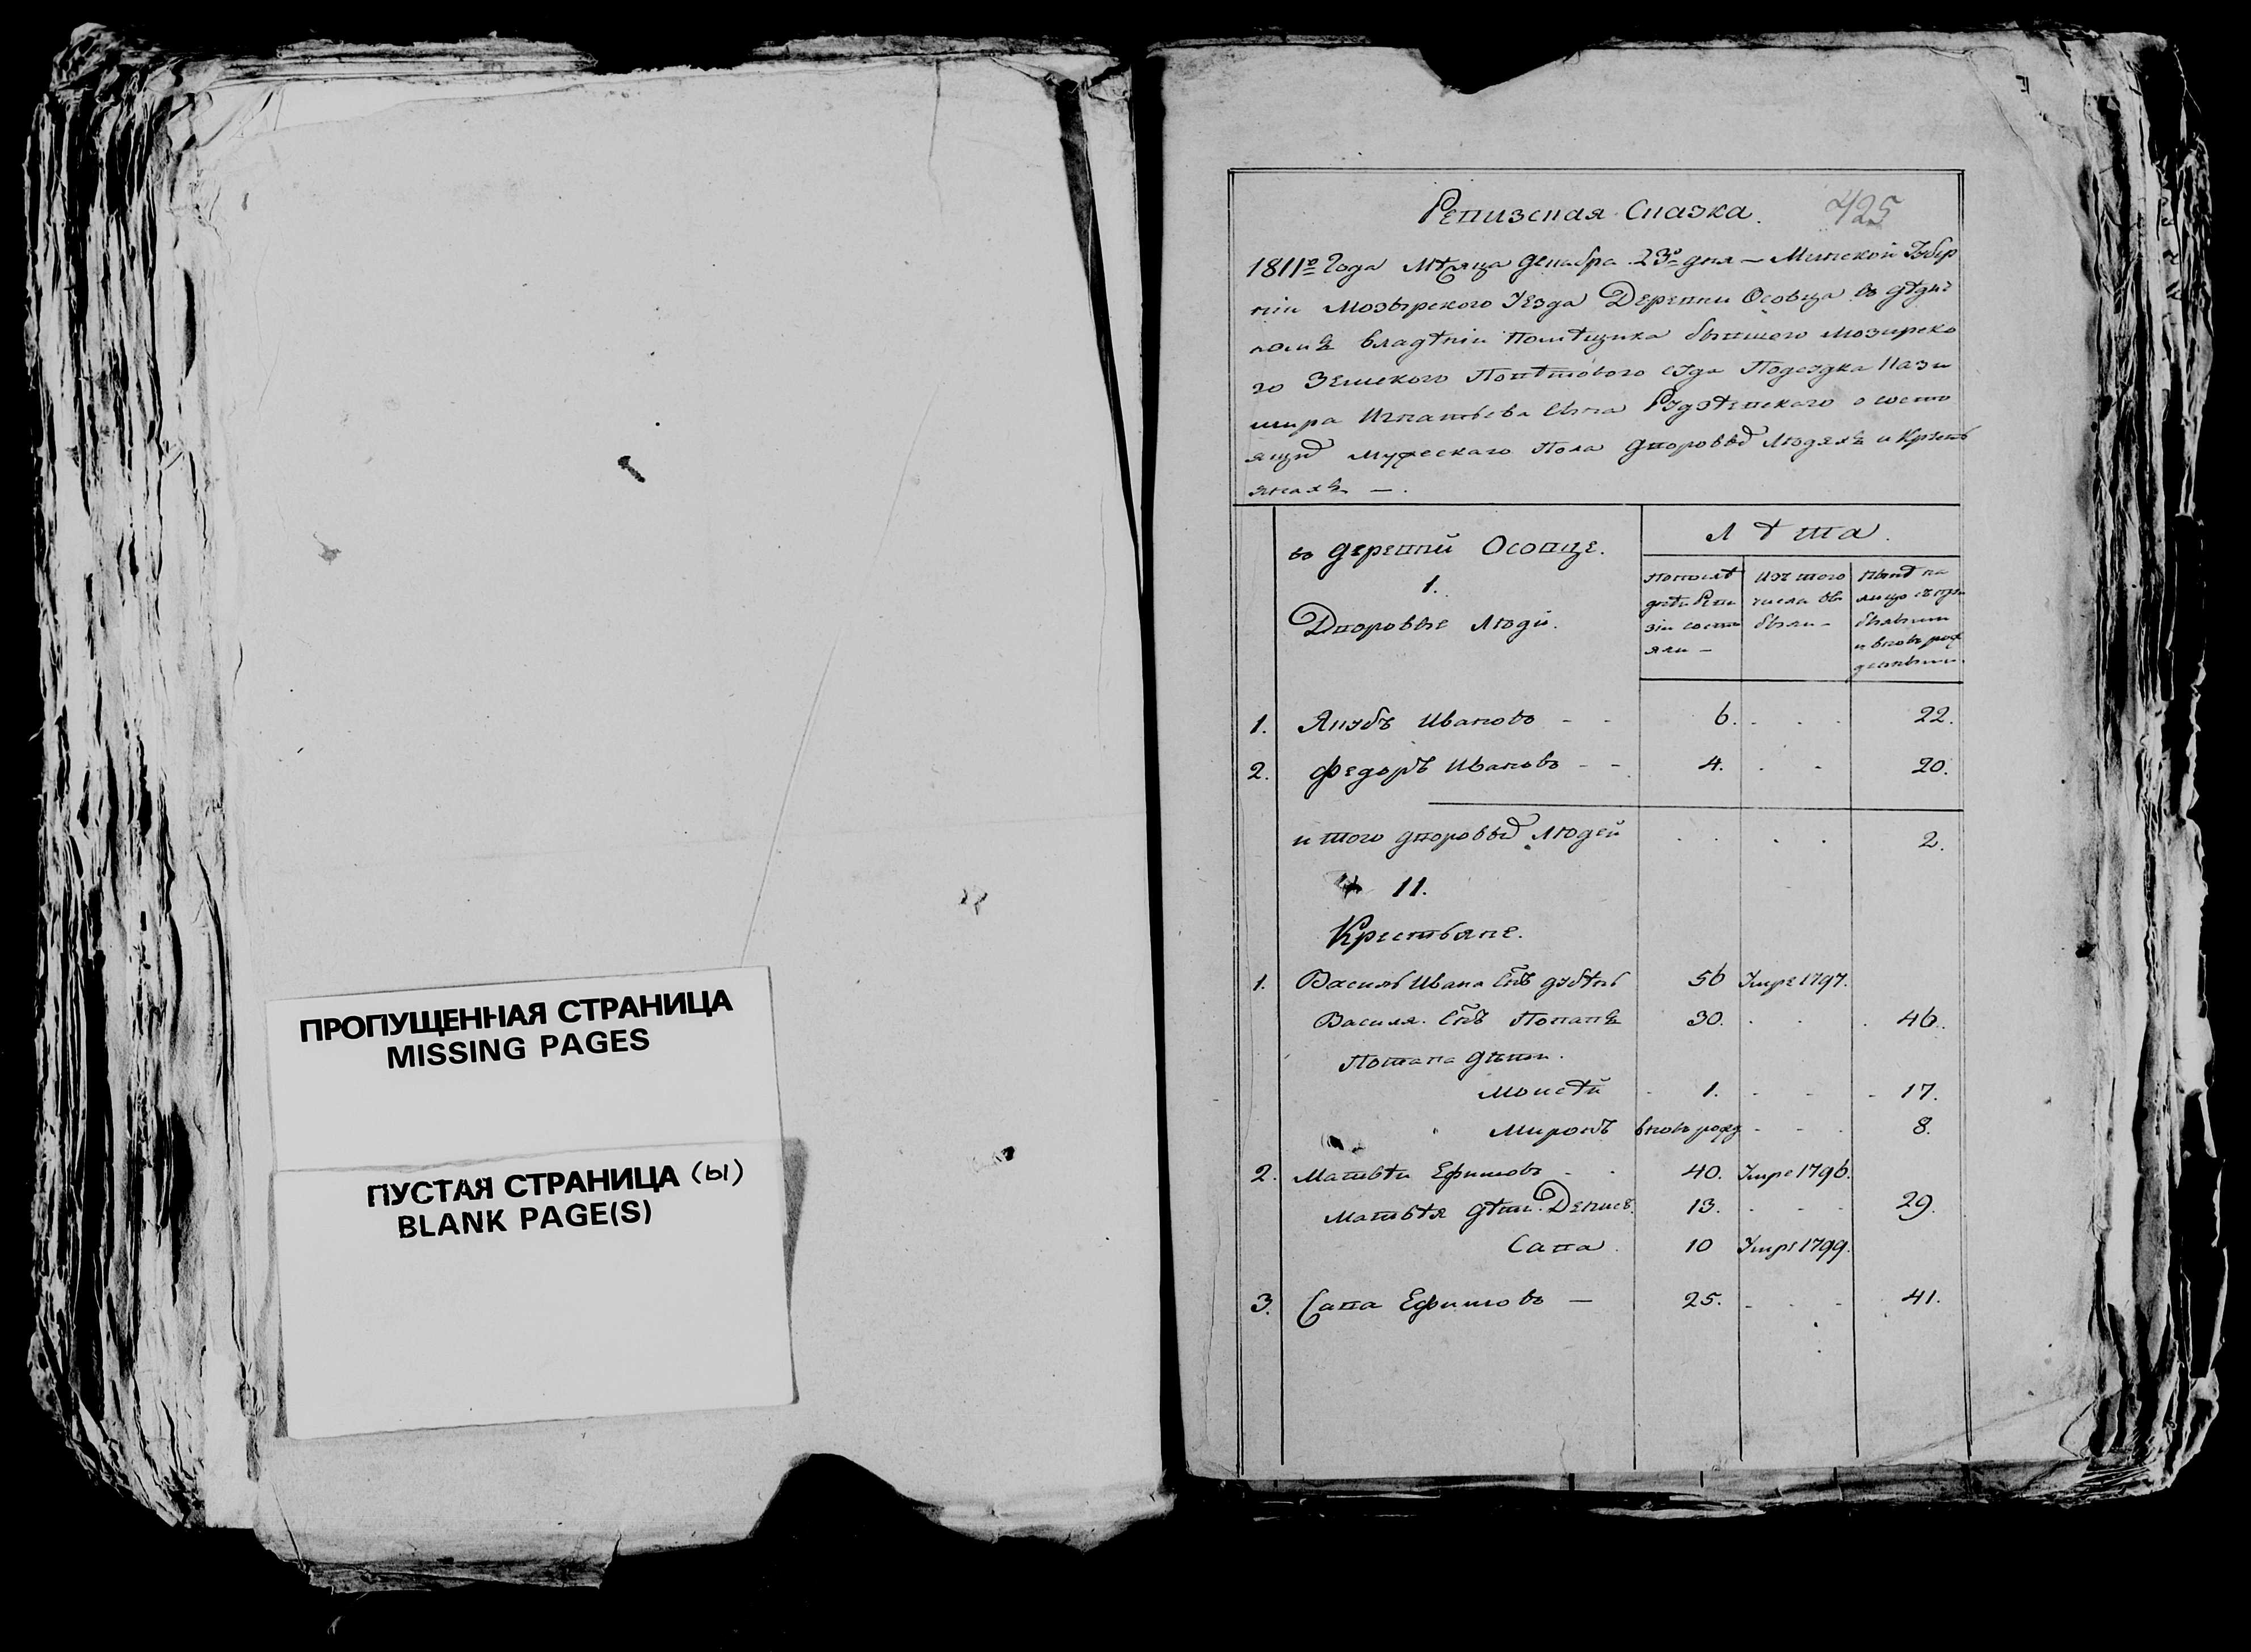 ПРОПУЩЕННАЯ СТРАНИЦА
MISSING PAGES
ПУСТАЯ СТРАНИЦА (ы)
BLANK PAGE(S)
Ревизская Сказка. 425
1811го Года Мѣсяца Декабра 23го дня — Минской Губер
ніи Мозырского Уезда Деревни Осовца въ дѣдич
номъ владѣніи Помѣщика бывшого Мозирско
го Земского Повѣтового суда Подсудка Кази
мира Игнатьева Сына о состо
ящихъ Мужескаго Пола дворовых Людяхъ и Крѣсть
янахъ —.
въ деревнй Осовце.
Лѣта.
1.
Дворовые Люди.
По послѣ
дней Реви
зіи состо
яли —
Изъ того
числа вы
были —
Нынѣ на
лицо съ при
бывшими
и вновь рож
денными.
1. Якубъ Ивановъ - - 6. - - - 22.
2. Федоръ Ивановъ - - 4. - - 20.
и того дворовых Людей . . . . 2.
11.
Крестьяне.
1. Василь Ивана Снъ 56 Умре 1797.
Василя Снъ Потапъ 30. . . . 46.
Потапа дѣти.
Моисѣй - 1. - - - 17.
Миронъ вновь рожд - - - 8.
2. Матвѣи Ефимовъ - - 40. Умре 1796.
Матвѣя дѣти. Денисъ. 13. - - - 29.
Сава. 10 Умре 1799.
3. Сава Ефимовъ — 25. - - - 41.